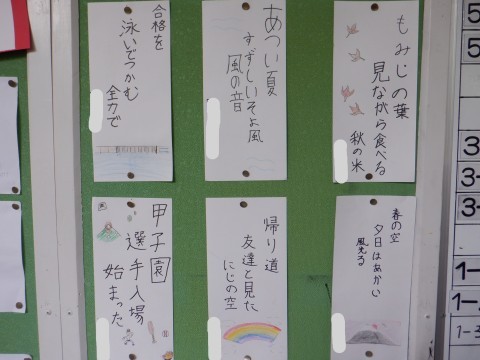 もみじの葉
見ながら食べる
秋の米
あつい夏
すずしいそよ風
風の音
合格を
泳いでつかむ
全力で
春の空
夕日はあかい
風光る
帰り道
友達と見た
にじの空
甲子園
選手入場
始まった
5
5
3
3-
3-
1-
1-
1-3